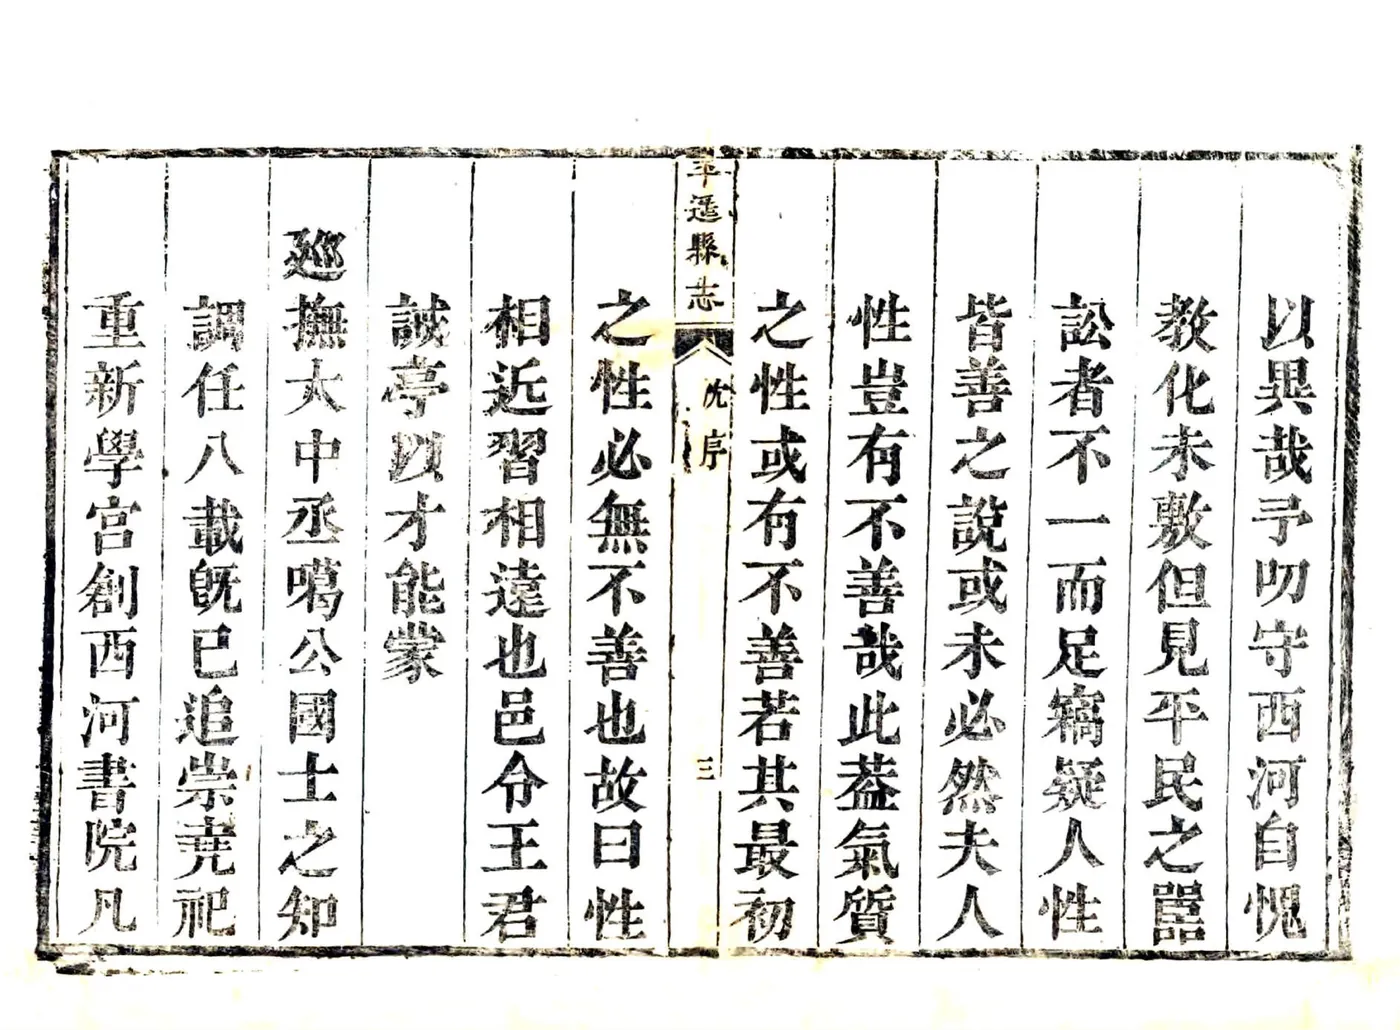 以異哉予叨守西河自愧
教化未敷但見平民之嚚
訟者不一而足竊疑人性
皆善之說或未必然夫人
性豈有不善哉此葢氣質
之性或有不善若其最初
平遥縣志
沈序
三
之性必無不善也故曰性
相近習相遠也邑令王君
誠亭以才能蒙
廵撫大中丞噶公國士之知
調任八載旣已追崇堯祀
重新學宮創西河書院凡